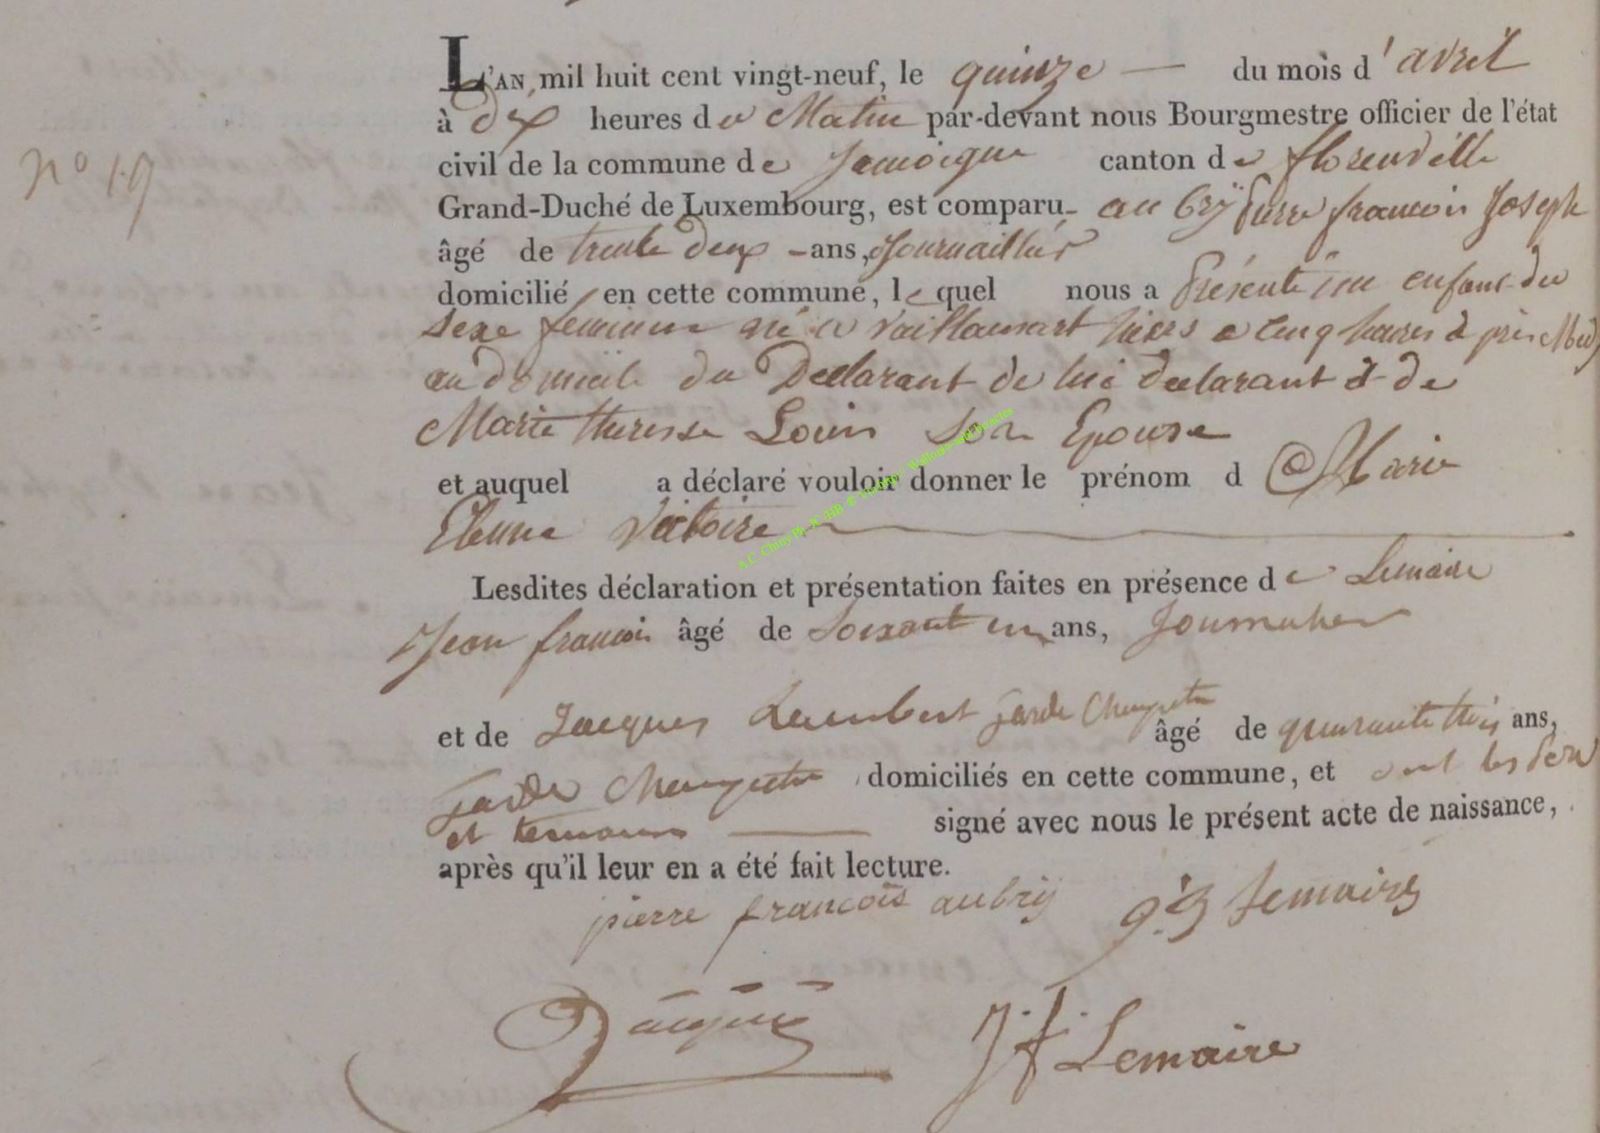 L'AN mil huit cent vingt-neuf, le quinze — du mois d'avril
à dix heures du Matin par-devant nous Bourgmestre officier de l'état
civil de la commune de Jamoigne canton de florenville
n° 19
Grand-Duché de Luxembourg, est comparu aubrÿ Pierre francois Joseph
âgé de trente deux - ans, Journaillier
domicilié en cette commune, lequel nous a Présenté un enfant du
sexe feminin né a hiers a cinq heures après Midi
au domicile du Declarant de lui declarant & de
Marie theresse Louis Son Epouse
et auquel a déclaré vouloir donner le prénom de Marie
Victoire
Lesdites déclaration et présentation faites en présence de Lemaire
Jean francois âgé de Soixante un ans,
et de Jacques Lambert garde Champetre âgé de quarante trois ans,
garde Champetre domiciliés en cette commune, et ont les
et temoins — signé avec nous le présent acte de naissance,
après qu'il leur en a été fait lecture.
pierre francois aubrij Lemaire
Jacques J f Lemaire